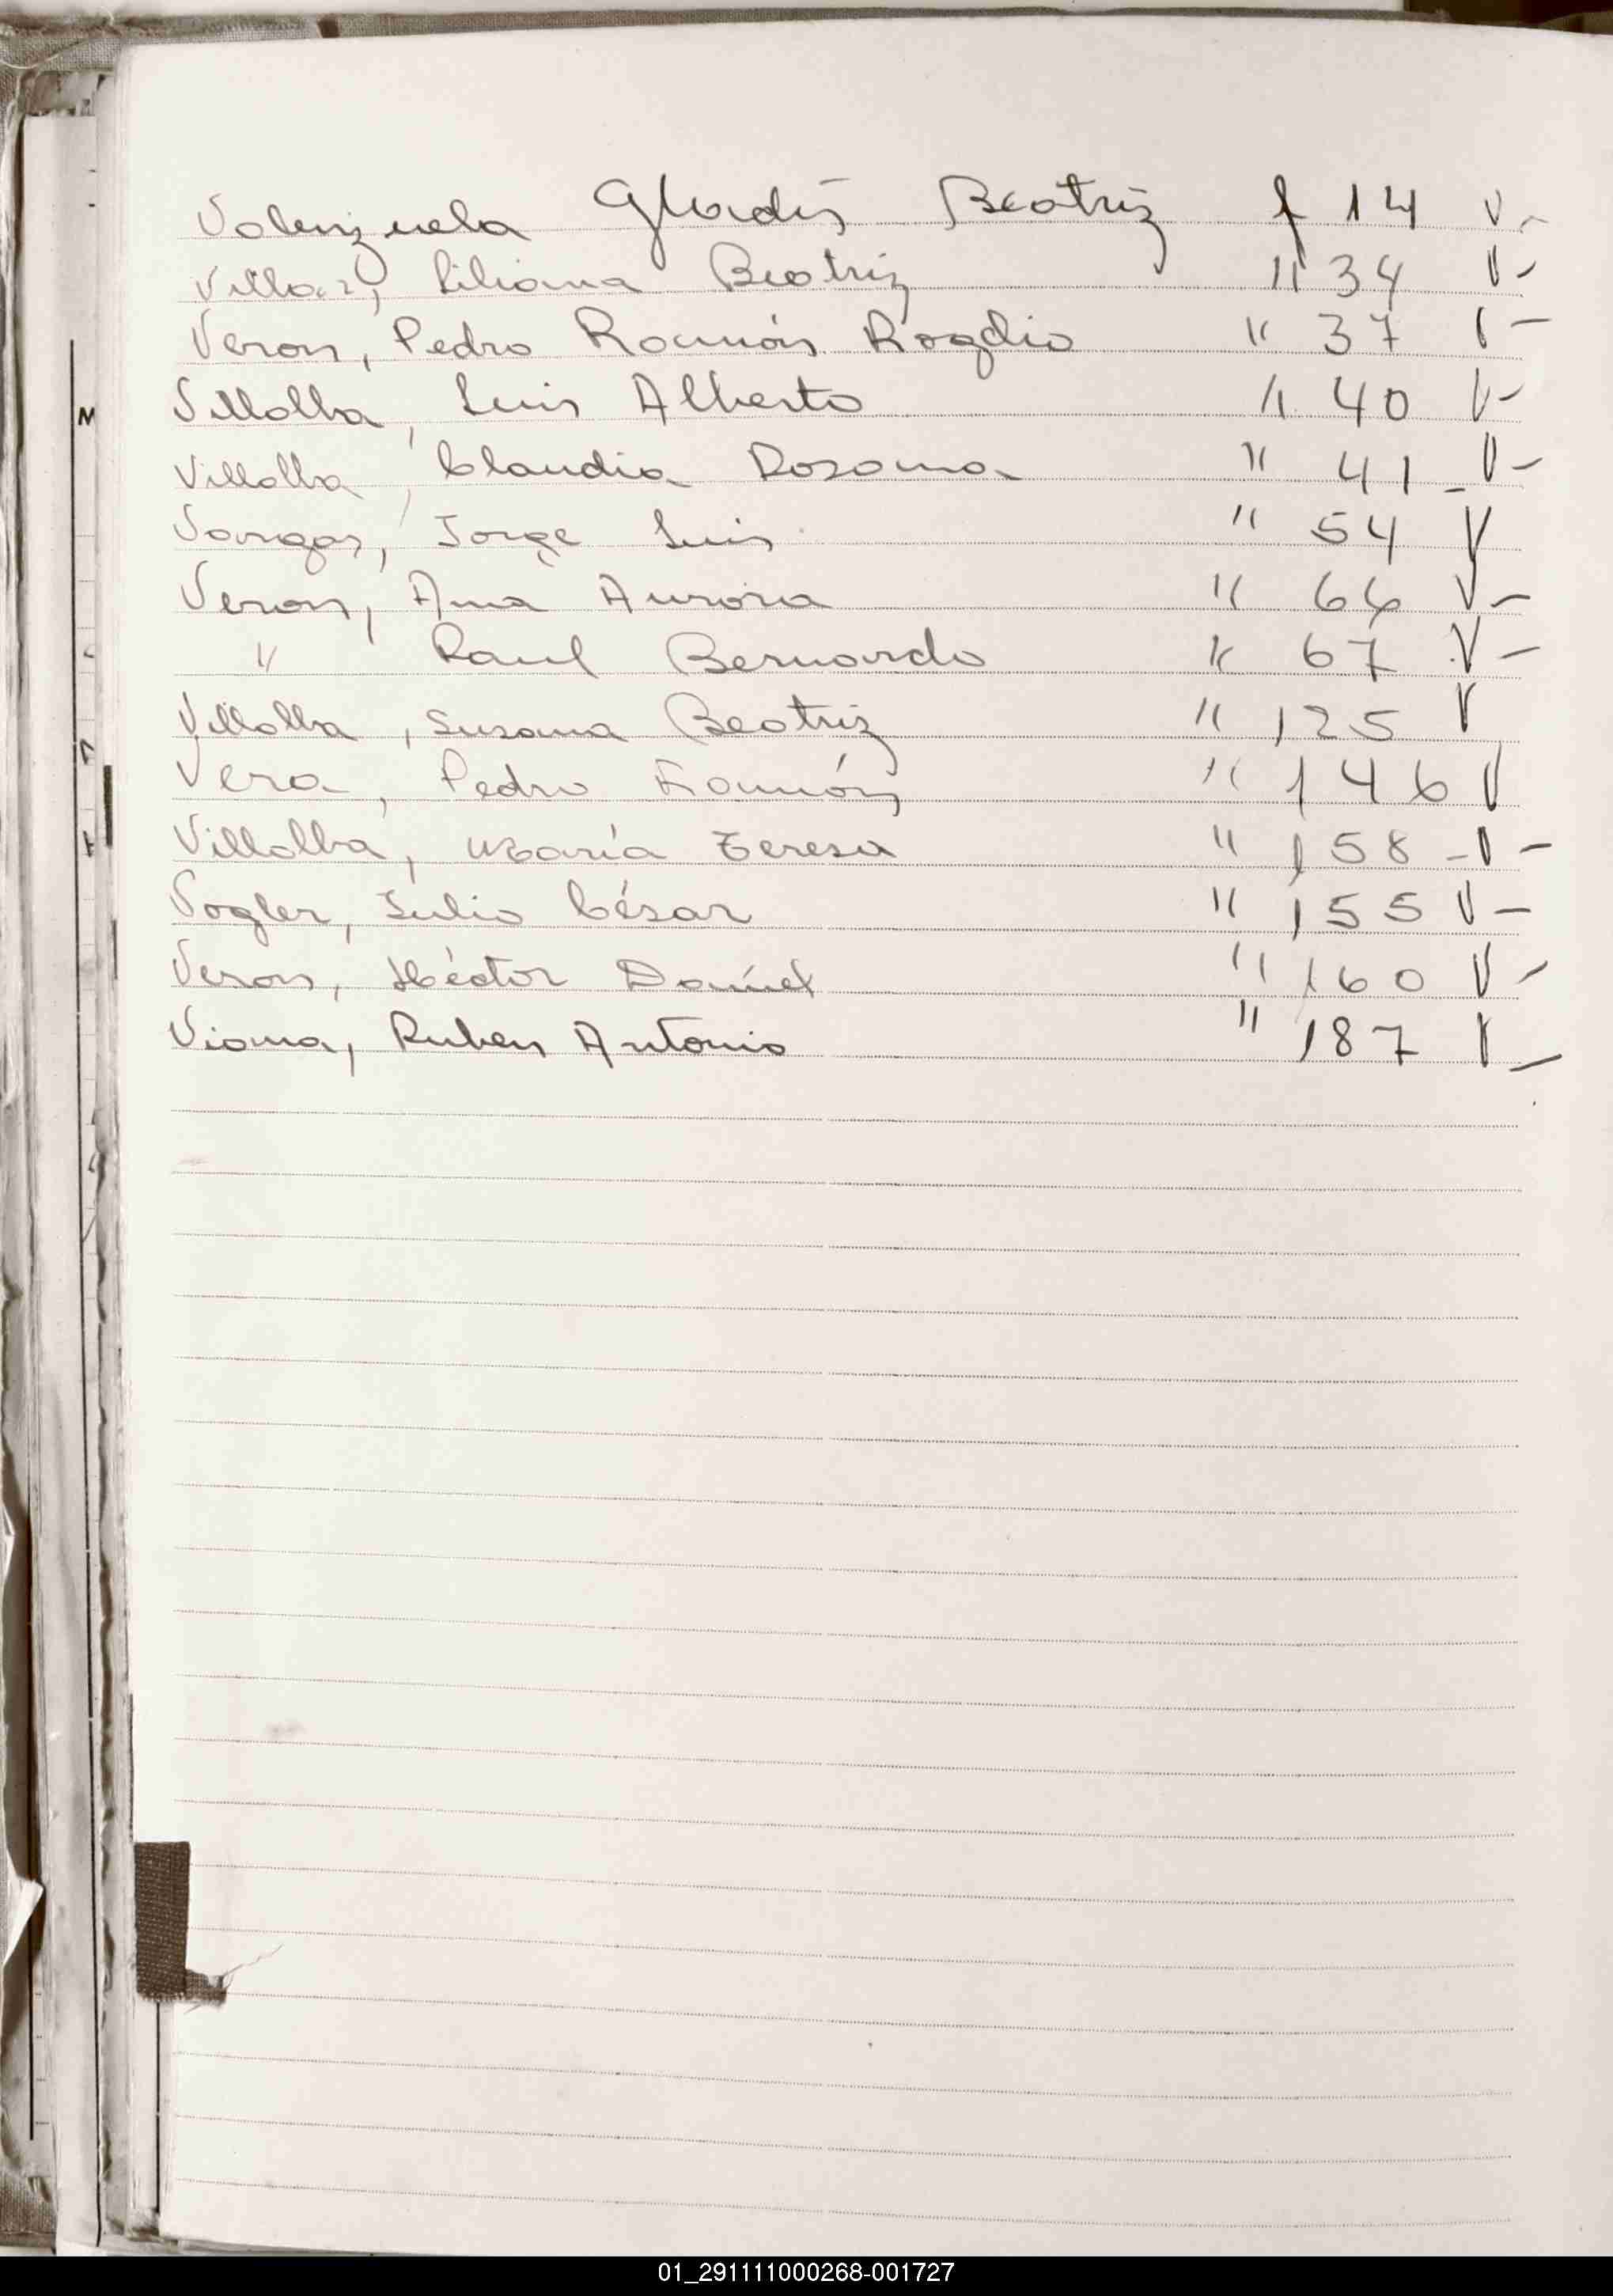 Valenzuela Gladis Beatriz f 14 V-
Villar, Liliana Beatriz " 34 V-
Veron, Pedro Ramón Rogelio " 37 V-
Villalba, Luis Alberto " 40 V-
Villalba, Claudia Rosana " 41 - V-
Vargas, Jorge Luis " 54 V
Veron, Ana Aurora " 66 V-
" Raul Bernardo " 67 V-
Villalba, Susana Beatriz " 125 V
Vera, Pedro Ramón " 146 V
Villalba, María Teresa " 158 - V -
Vogler, Julio César " 155 V-
Veron, Héctor Daniel " 160 V-
Viana, Ruben Antonio " 187 V-
M
01_291111000268-001727